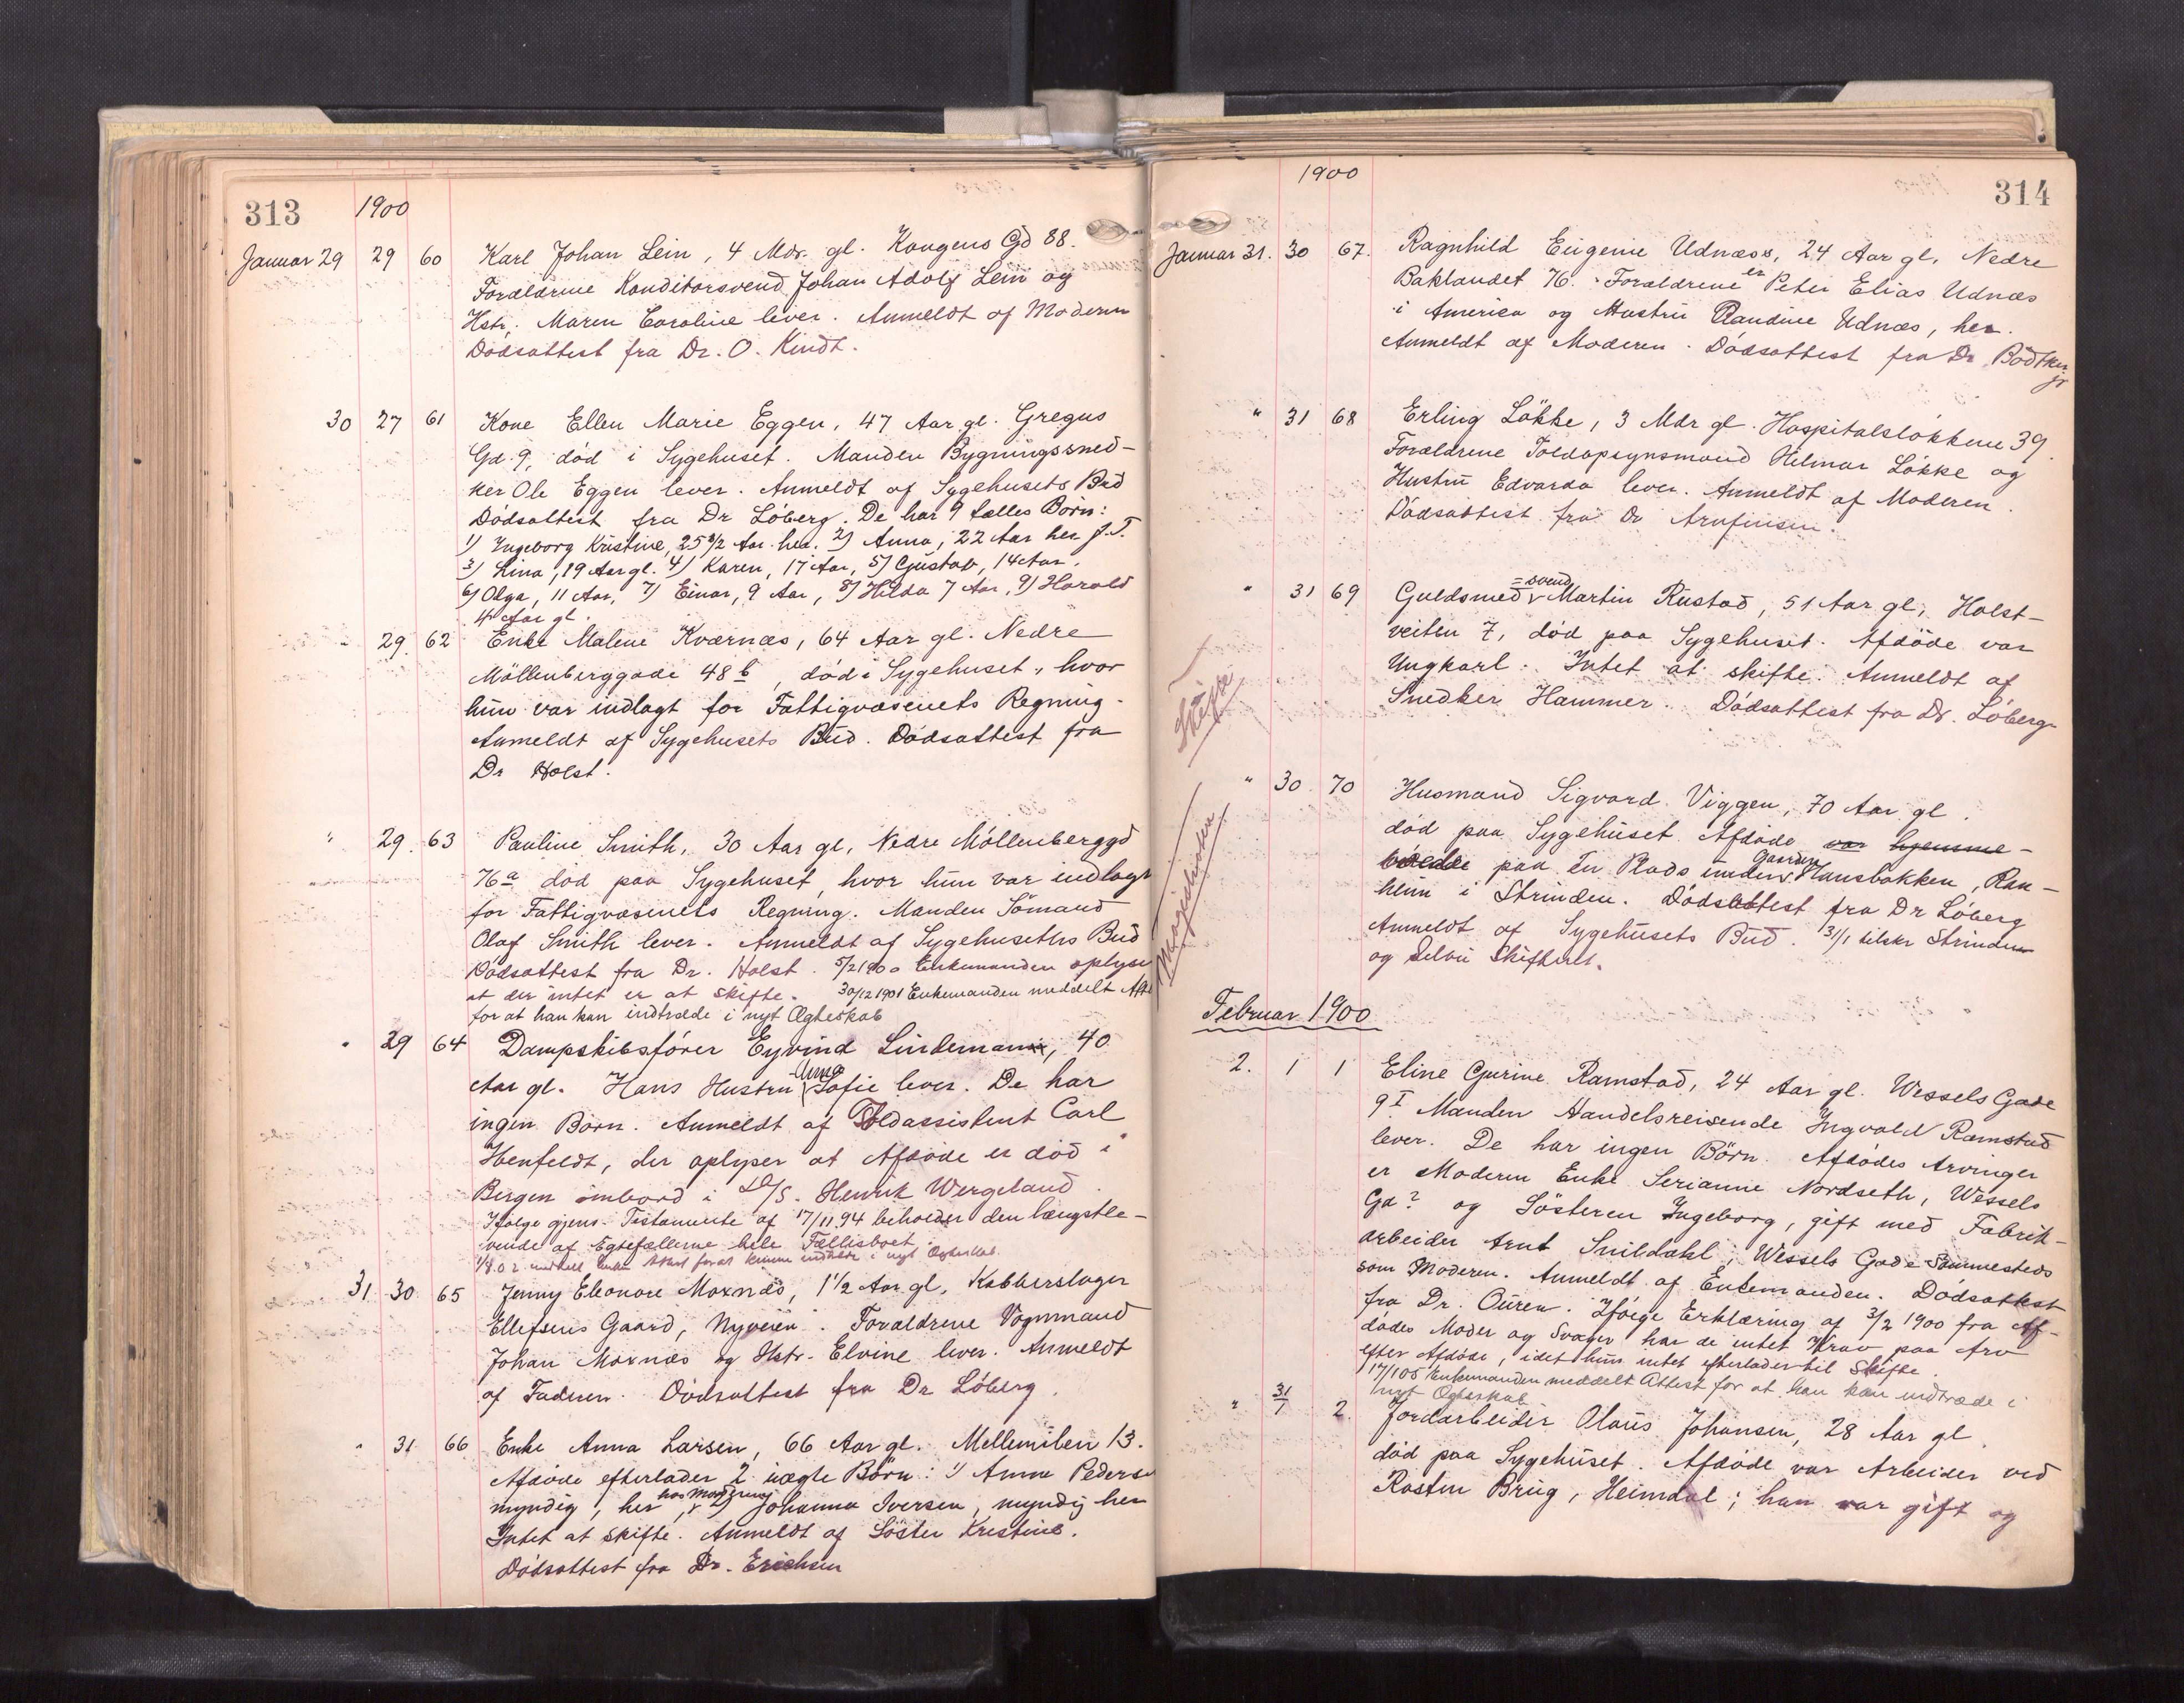 313 1900
Januar 29 29 60 Karl Johan Lein, 4 Mdr. gl. Kongens Gd 88.
Forældrene Konditorsvend Johan Adolf Lein og
Hstr. Maren Caroline lever. Anmeldt af Moderen
Dödsattest fra Dr. O. Kindt.
30 27 61 Kone Ellen Marie Eggen, 47 Aar gl. Gregus
Gd. 9, död i Sygehuset. Manden Bygningssned-
ker Ole Eggen lever. Anmeldt af Sygehusets Bud
Dödsattest fra Dr Löberg. De har 9 fælles Börn:
1) Ingeborg Kristine, 25 1/2 Aar. her. 2) Anna, 22 Aar her J.T.
3) Lina, 19 Aar gl. 4) Karen, 17 Aar, 5) Gustav, 14 Aar.
6) Olga, 11 Aar, 7) Einar, 9 Aar, 8) Hilda 7 Aar, 9) Harald
4 Aar gl.
" 29. 62 Enke Malene Kværnæs, 64 Aar gl. Nedre
Möllenberggade 48 b, död i Sygehuset, hvor
hun var indlagt for Fattigvæsenets Regning.
Anmeldt af Sygehusets Bud. Dödsattest fra
Dr Holst.
" 29. 63 Pauline Smith, 30 Aar gl, Nedre Möllenberggd
76 a död paa Sygehuset, hvor hun var indlagt
for Fattigvæsenets Regning. Manden Sömand
Olaf Smith lever. Anmeldt af Sygehusets Bud
Dödsattest fra Dr. Holst. 5/2 1900 Enkemanden oplyser
at der intet er at skifte. 30/12 1901 Enkemanden meddelt Att
for at han kan indtræde i nyt Ægteskab
" 29 64 Dampskibsförer Eyvind Lindemann, 40
Aar gl. Hans Hustru Anna Sofie lever. De har
ingen Börn. Anmeldt af Toldassistent Carl
Henfeldt, der oplyser at Afdöde er död i
Bergen ombord i D/S. Henrik Wergeland.
Ifölge gjens. Testamente af 17/11.94 beholder den længstle-
vende af Egtefællerne hele Fællesboet.
Attest for at kunne indtræde i nyt Ægteskab.
31 30 65 Jenny Eleonore Moxnæs, 1 1/2 Aar gl, Kobberslager
Ellefsens Gaard, Nyveien. Forældrene Vognmand
Johan Moxnæs og Hstr. Elvine lever. Anmeldt
af Faderen. Dödsattest fra Dr Löberg.
" 31 66 Enke Anna Larsen, 66 Aar gl. Mellemilen 13.
Afdöde efterlader 2 uægte Börn: 1) Anna Peders
myndig, her, 2) Johanna Iversen, myndig her
Intet at skifte. Anmeldt af Söster Kristine.
Dödsattest fra Dr. Erichsen
1900 314
Januar 31. 30 67. Ragnhild Eugenie Udnæs, 24 Aar gl, Nedre
Baklandet 76. Forældrene er Peter Elias Udnæs
i America og Hustru Randine Udnæs, her.
Anmeldt af Moderen. Dödsattest fra Dr Bödtker
jr
" 31 68 Erling Lökke, 3 Mdr gl. Hospitalslökkene 39.
Forældrene Toldopsynsmand Hilmar Lökke og
Hustru Edvarda lever. Anmeldt af Moderen.
Dödsattest fra Dr Arnfinsen.
" 31 69 Guldsmed=svend Martin Rustad, 51 Aar gl, Holst-
veiten 7, död paa Sygehuset. Afdöde var
Ungkarl. Intet at skifte. Anmeldt af
Snedker Hammer. Dödsattest fra Dr. Löberg
" 30 70 Husmand Sigvard Viggen, 70 Aar gl.
död paa Sygehuset. Afdöde var hjemme-
paa en Plads under Gaarden Hansbakken, Ran-
heim i Strinden. Dödsattest fra Dr Löberg
Anmeldt af Sygehusets Bud. 31/1 tilskr Strinden
og Selbu Skifteret.
Magistraten
Februar 1900
2. 1 1 Eline Gurine Ramstad, 24 Aar gl. Wessels Gade
9 I. Manden Handelsreisende Ingvald Ramstad
lever. De har ingen Börn. Afdödes Arvinger
er Moderen Enke Serianne Nordseth, Wessels
Gd? og Sösteren Ingeborg, gift med Fabrik-
arbeider Arnt Snildahl, Wessels Gade Sammesteds
som Moderen. Anmeldt af Enkemanden. Dödsattest
fra Dr. Ouren. Ifölge Erklæring af 3/2 1900 fra Af-
dödes Moder og Svager har de intet Krav paa Arv
efter Afdöde, idet hun intet efterlader til Skifte.
17/1 05 Enkemanden meddelt Attest for at han kan indtræde i
nyt Ægteskab
" 31/1 2. Jordarbeider Olaus Johansen, 28 Aar gl.
död paa Sygehuset. Afdöde var Arbeider ved
Rosten Brug, Heimdal; han var gift og